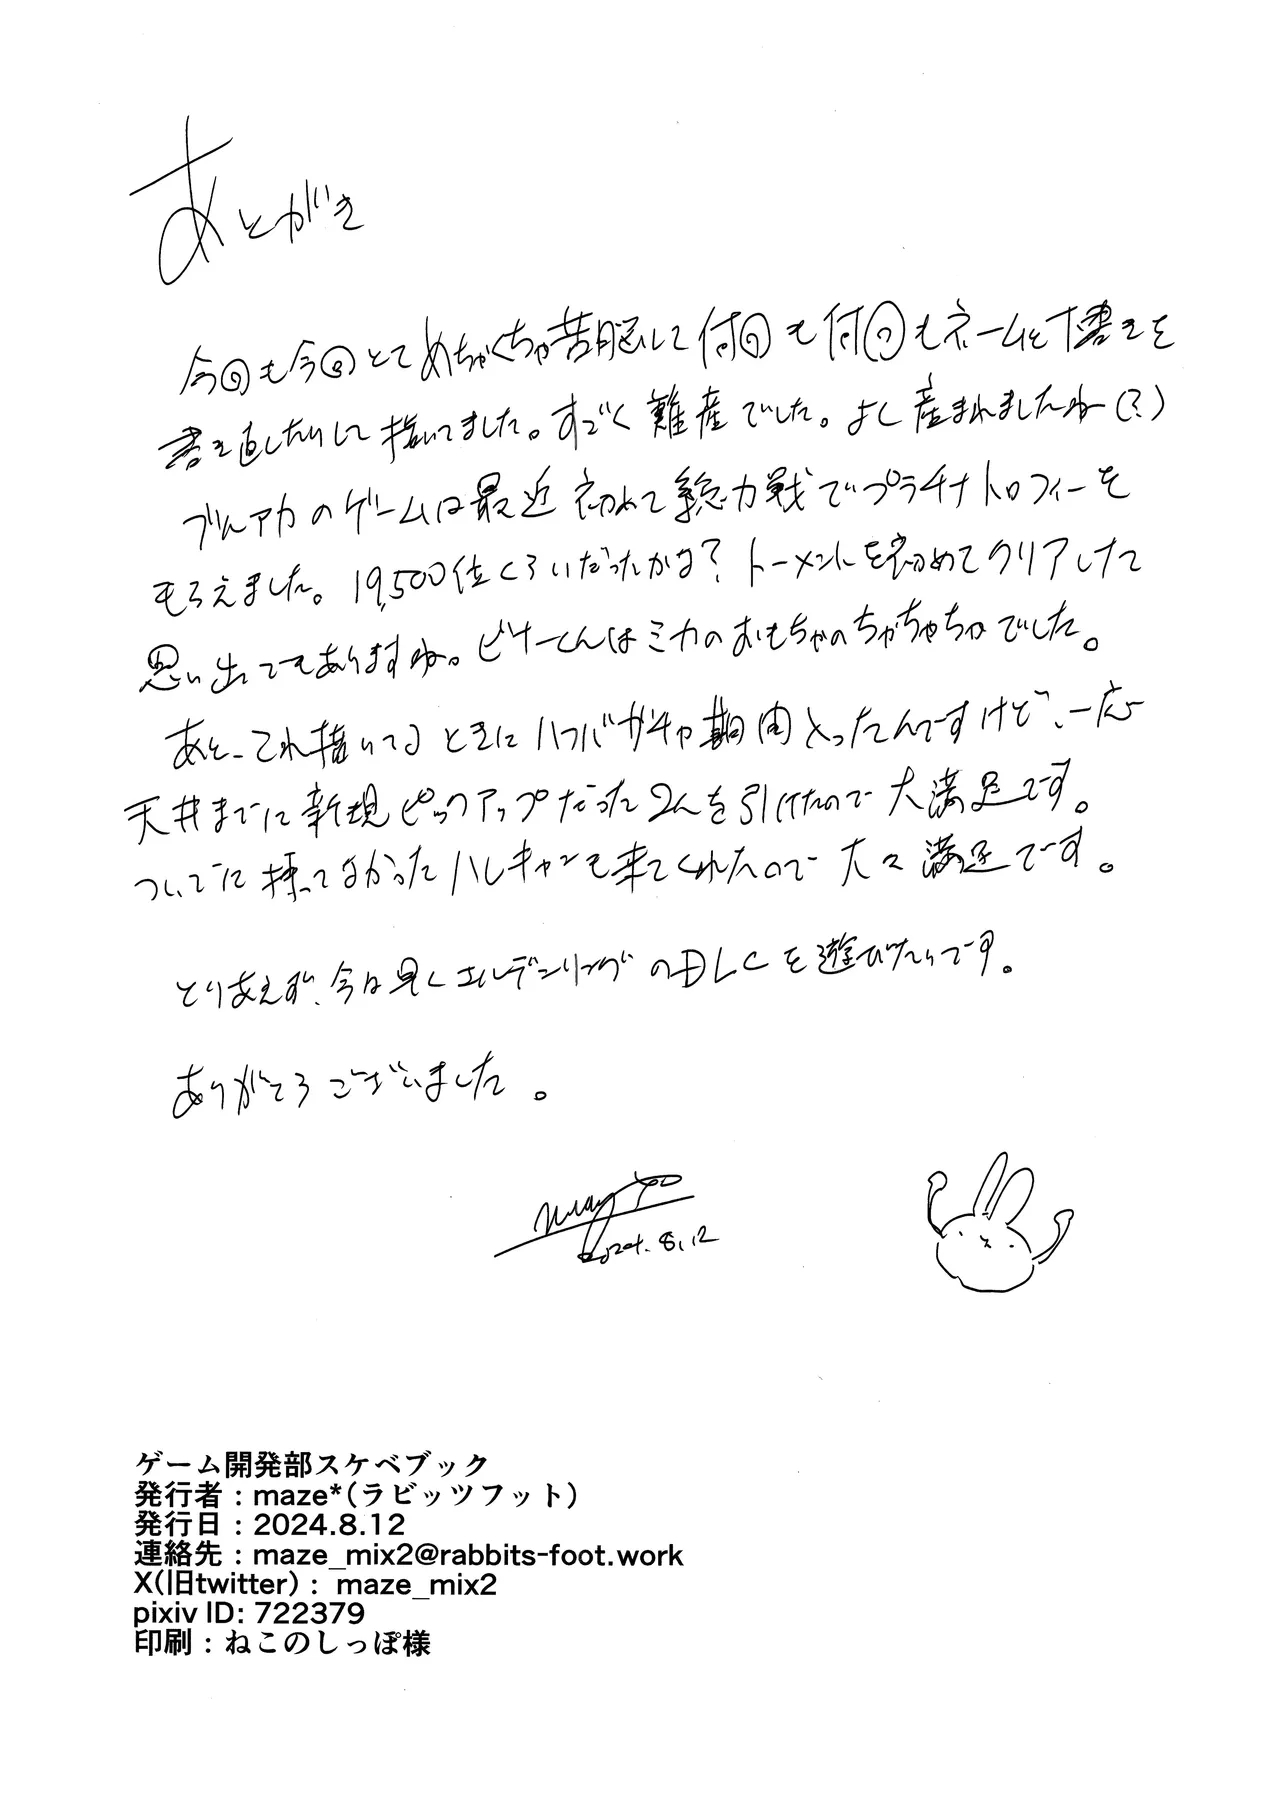 あとがき
今回も今回とてめちゃくちゃ苦悩して何回も何回もネームと下書きを
書き直したりして描いてました。すごく難産でした。よし産まれましたね(?)
ブルアカのゲームは最近初めて総力戦でプラチナトロフィーを
もらえました。19,500位くらいだったかな?トーメントを初めてクリアしたて
思い出でもありますね。ビナーくんはミカのおもちゃのちゃちゃちゃでした。
あと、これ描いてるときにハフバガチャ期間入ったんですけど、一応
天井までに新規ピックアップだった2人を引けたので大満足です。
ついでに持ってなかったハレキャンも来てくれたので大々満足です。
とりあえず、今は早くエルデンリングのDLCを遊びたいです。
ありがとうございました。
2024.8.12
ゲーム開発部スケベブック
発行者:maze*(ラビッツフット)
発行日:2024.8.12
連絡先:maze_mix2@rabbits-foot.work
X(旧twitter): maze_mix2
pixiv ID: 722379
印刷:ねこのしっぽ様